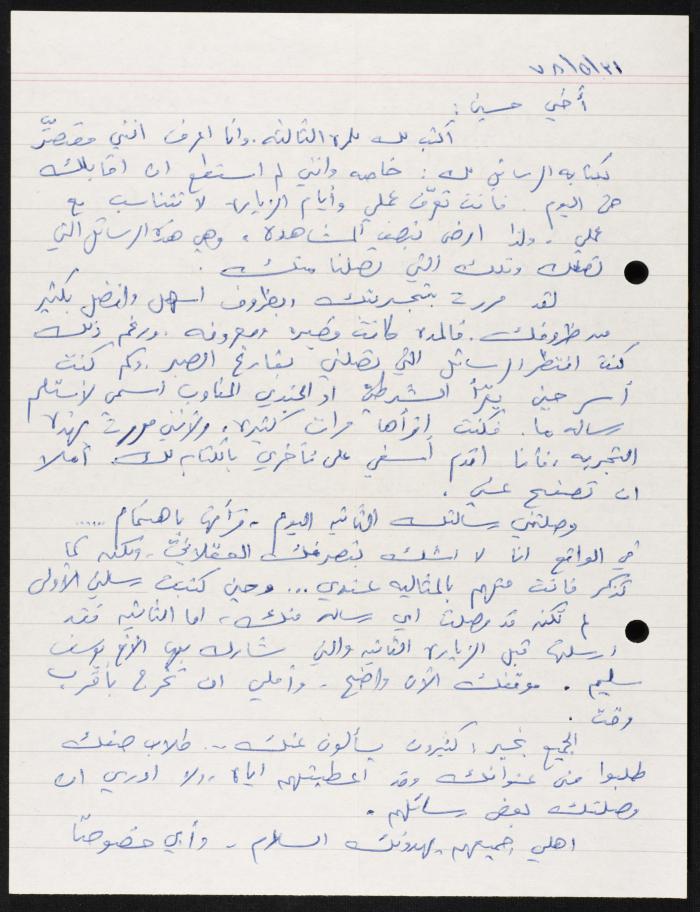 ٧٨/٥/٣١
أخي حسين :
أكتب لك للمرة الثالثة. وانا اعرف انني مقصّر
بكتابة الرسائل لك : خاصة وانني لم استطع ان اقابلك
حتى اليوم . فأنت تعرف عملي وأيام الزيارة لا تتناسب مع
عملي . ولذا ارضى بنصف المشاهدة ، وهي هذه الرسائل التي
تصلك وتلك التي تصلنا منك .
لقد مررت بتجربتك وبظروف اسهل وافضل بكثير
من ظروفك . فالمدة كانت قصيرة ومعروفة . ورغم ذلك
كنت انتظر الرسائل التي تصلني بفارغ الصبر . وكم كنت
أسر حين يقرأ الشرطي او الجندي المناوب اسمي لأستلم
رسالة ما . فكنت اقرأها مرات كثيرة ، ولأنني مررت بهذه
التجربة ، فأنا اقدم أسفي على تأخري بالكتابة لك . آملا
ان تصفح عني .
وصلتني رسالتك الثانية اليوم - قرأتها باهتمام ......
في الواقع انا لا اشك بتصرفك العقلاني - ولكنه كما
تذكر فأنت متهم بالمثالية عندي ... وحين كتبت رسالتي الأولى
لم تكن قد وصلت اي رسالة منك ، اما الثانية فقد
ارسلتها قبل الزيارة الثانية والتي شارك بها الأخ يوسف
سليم . موقفك الآن واضح - وأملي ان تخرج بأقرب
وقت .
الجميع بخير ، كثيرون يسألون عنك .. طلاب صفك
طلبوا مني عنوانك وقد اعطيتهم اياه ، ولا ادري ان
وصلتك بعض رسائلهم .
اهلي جميعهم يهدونك السلام - وأبي خصوصًا